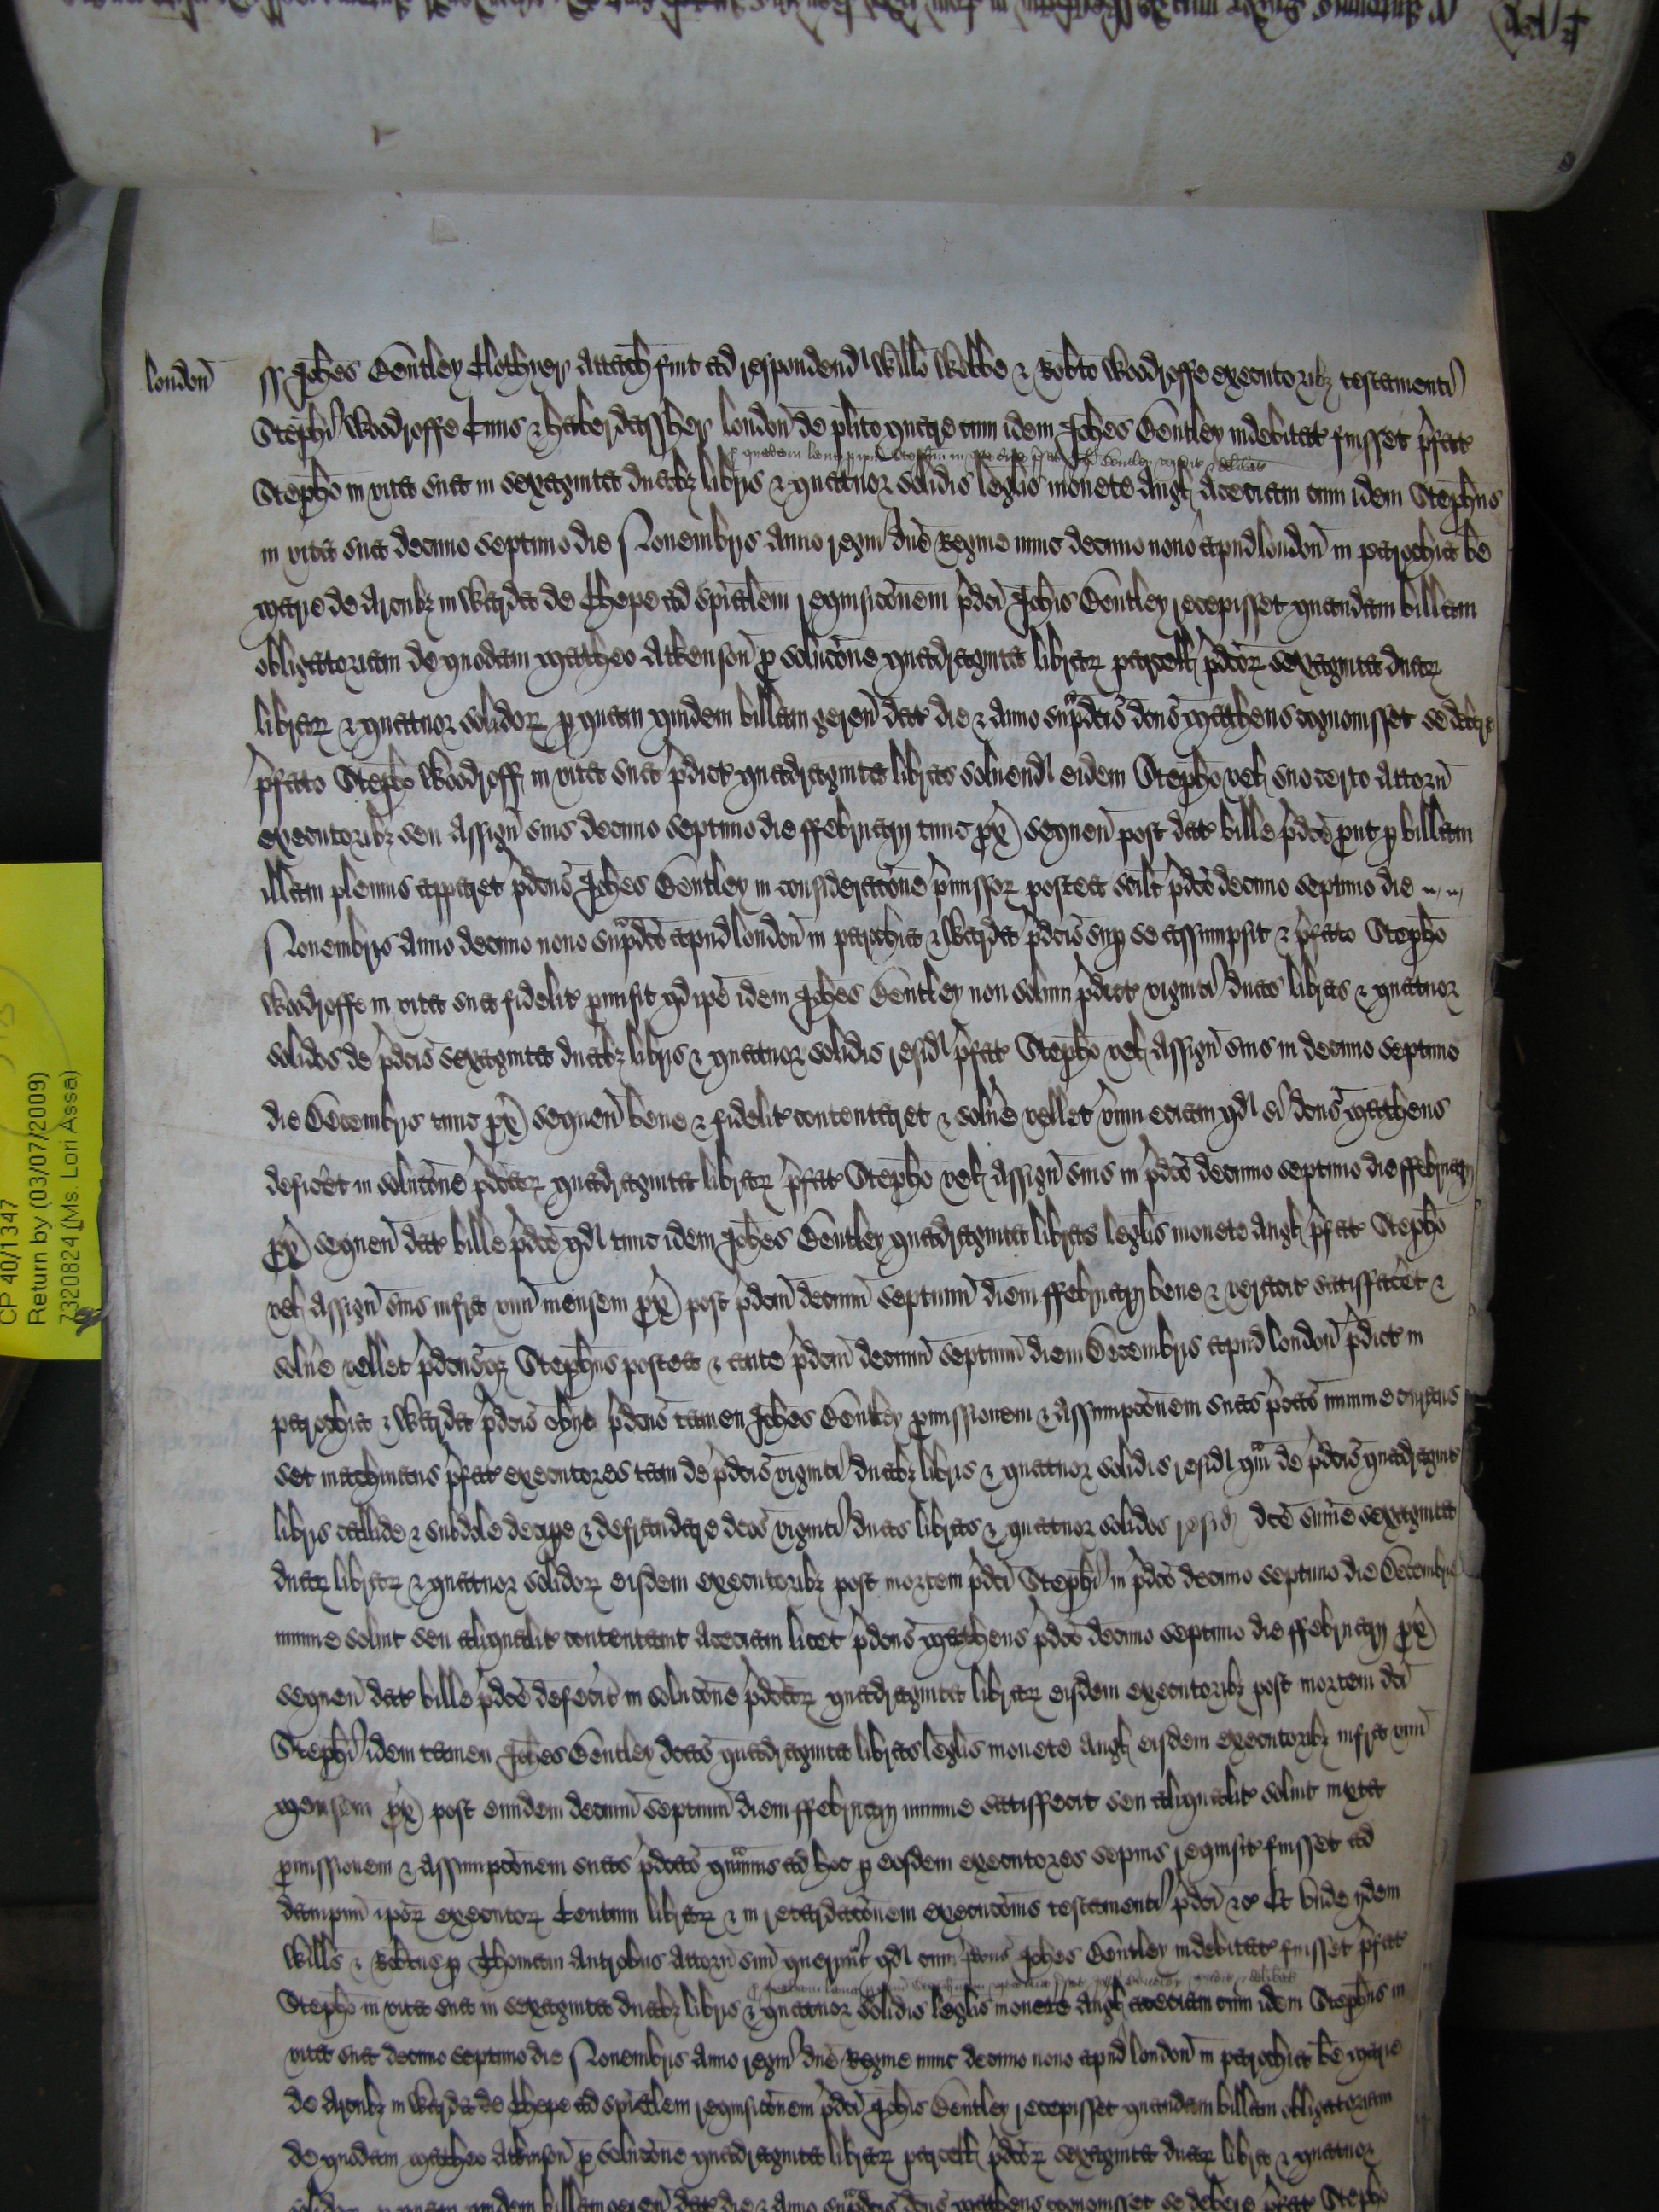 london̄ ss Joh̄es Bentley Clothyer Attach̄ fuit ad respondend Will̄o Webbe & Rob̄to Woodroffe executoribz testamenti
Steph̄i Woodroffe Civis & haberdassher london̄ de pl̄ito quare cum idem Joh̄es Bentley indebitat fuisset p̄fat
Steph̄o in vita sua in sexaginta duabz libris & quatuor solidis leḡlis monete Angl aceciam cum idem Steph̄us
in vita sua decimo septimo die Novembris Anno regni dn̄e Regine nunc decimo nono apud london̄ in parochia b̄e
marie de Arcubz in Warda de Chepe ad sp̄ialem requisic̄onem p̄dc̄i Joh̄is Bentley recepisset quandam billam
obligatoriam de quodam matheo Atkenson p soluc̄one quadraginta librar parcell p̄dc̄or sexaginta duar
librar & quatuor solidor p quam quidem billam geren̄ dat die & anno sup̄dc̄is dc̄us matheus cognovisset se debere
p̄fato Steph̄o Woodroff in vita sua p̄dict quadraginta libras solvend eidem Steph̄o vel suo certo Attorn̄
executoribz seu Assign̄ suis decimo septimo die ffebruarij tunc px̄ sequen̄ post dat bille p̄dc̄e put p billam
illam plenius apparet p̄dc̄us Joh̄es Bentley in considerac̄one p̄missor postea scilt p̄dc̄o decimo septimo die
Novembris Anno decimo nono sup̄dc̄o apud london̄ in parochia & Warda p̄dc̄is sup se assumpsit & p̄fato Steph̄o
Woodroffe in vita sua fidelit pmisit qd ip̄e idem Joh̄es Bentley non solum p̄dict viginti duas libras & quatuor
solidos de p̄dc̄is sexaginta duabz libris & quatuor solidis resid p̄fat Steph̄o vel Assign̄ suis in decimo septimo
die Decembris tunc px̄ sequen̄ bene & fidelit contentaret & solv̄e vellet v̄um eciam qd si dc̄us matheus
defic̄et in soluc̄one p̄dc̄ar quadraginta librar p̄fat Steph̄o vel Assign̄ suis in p̄dc̄o decimo septimo die ffebruarij
px̄ sequen̄ dat bille p̄dc̄e qd tunc idem Joh̄es Bentley quadraginta libras leḡlis monete Angl p̄fat Steph̄o
vel Assign̄ suis infra unū mensem px̄ post p̄dc̄m decimū septimū diem ffebruarij bene & veracit satisfac̄et &
solv̄e vellet p̄dc̄usqz Steph̄us postea & ante p̄dc̄m decimū septimū diem Decembris apud london̄ p̄dict in
parochia & Warda p̄dc̄is obijt p̄dc̄us tamen Joh̄es Bentley pmissionem & Assumpc̄onem suas p̄dc̄as minime curans
set machinans p̄fat executores tam de p̄dc̄is viginti duabz libris & quatuor solidis resid qm̄ de p̄dc̄is quadraginta
libris callide & subdole decip̄e & defraudare dc̄as viginti duas libras & quatuor solidos resid dc̄e summe sexaginta
duar librar & quatuor solidor eisdem executoribz post mortem p̄dc̄i Steph̄i in p̄dc̄o decimo septimo die Decembris
minime solvit seu aliqualit contentavit aceciam licet p̄dc̄us matheus p̄dc̄o decimo septimo die ffebruarij px̄
sequen̄ dat bille p̄dc̄e defecit in soluc̄one p̄dc̄ar quadraginta librar eisdem executoribz post mortem dc̄i
Steph̄i idem tamen Joh̄es Bentley dc̄as quadraginta libras leḡlis monete Angl eisdem executoribz infra unū
mensem px̄ post eundem decimū septimū diem ffebruarij minime satisfecit seu aliqualit solvit iuxta
pmissionem & Assumpc̄onem suas p̄dc̄as quāmvis ad hoc p eosdem executores sepius requisit fuisset ad
dampnū ip̄or executor Centum librar & in retardac̄onem execuc̄onis testamenti p̄dc̄i &c Et unde ijdem
Will̄s & Rob̄tus p Thomam Antrobus Attorn̄ suū querunt̄ qd cum p̄dc̄us Joh̄es Bentley indebitat fuisset p̄fat
Steph̄o in vita sua in sexaginta duabz libris & quatuor solidis leḡlis monete Angl aceciam cum idem Steph̄us in
vita sua decimo septimo die Novembris Anno regni dn̄e Regine nunc decimo nono apud london̄ in parochia b̄e marie
de Arcubz in Warda de Chepe ad sp̄ialem requisic̄onem p̄dc̄i Joh̄is Bentley recepisset quandam billam obligatoriam
de quodam matheo Atkinson p soluc̄one quadraginta librar parcell p̄dc̄or sexaginta duar libra & quatuor
solidor p quam quidem billam geren̄ dat die & anno sup̄dc̄is dc̄us matheus cognovisset se debere p̄fat Steph̄o
CP 40/1347
Return by (03/07/2009)
7320824 (Ms. Lori Assa)